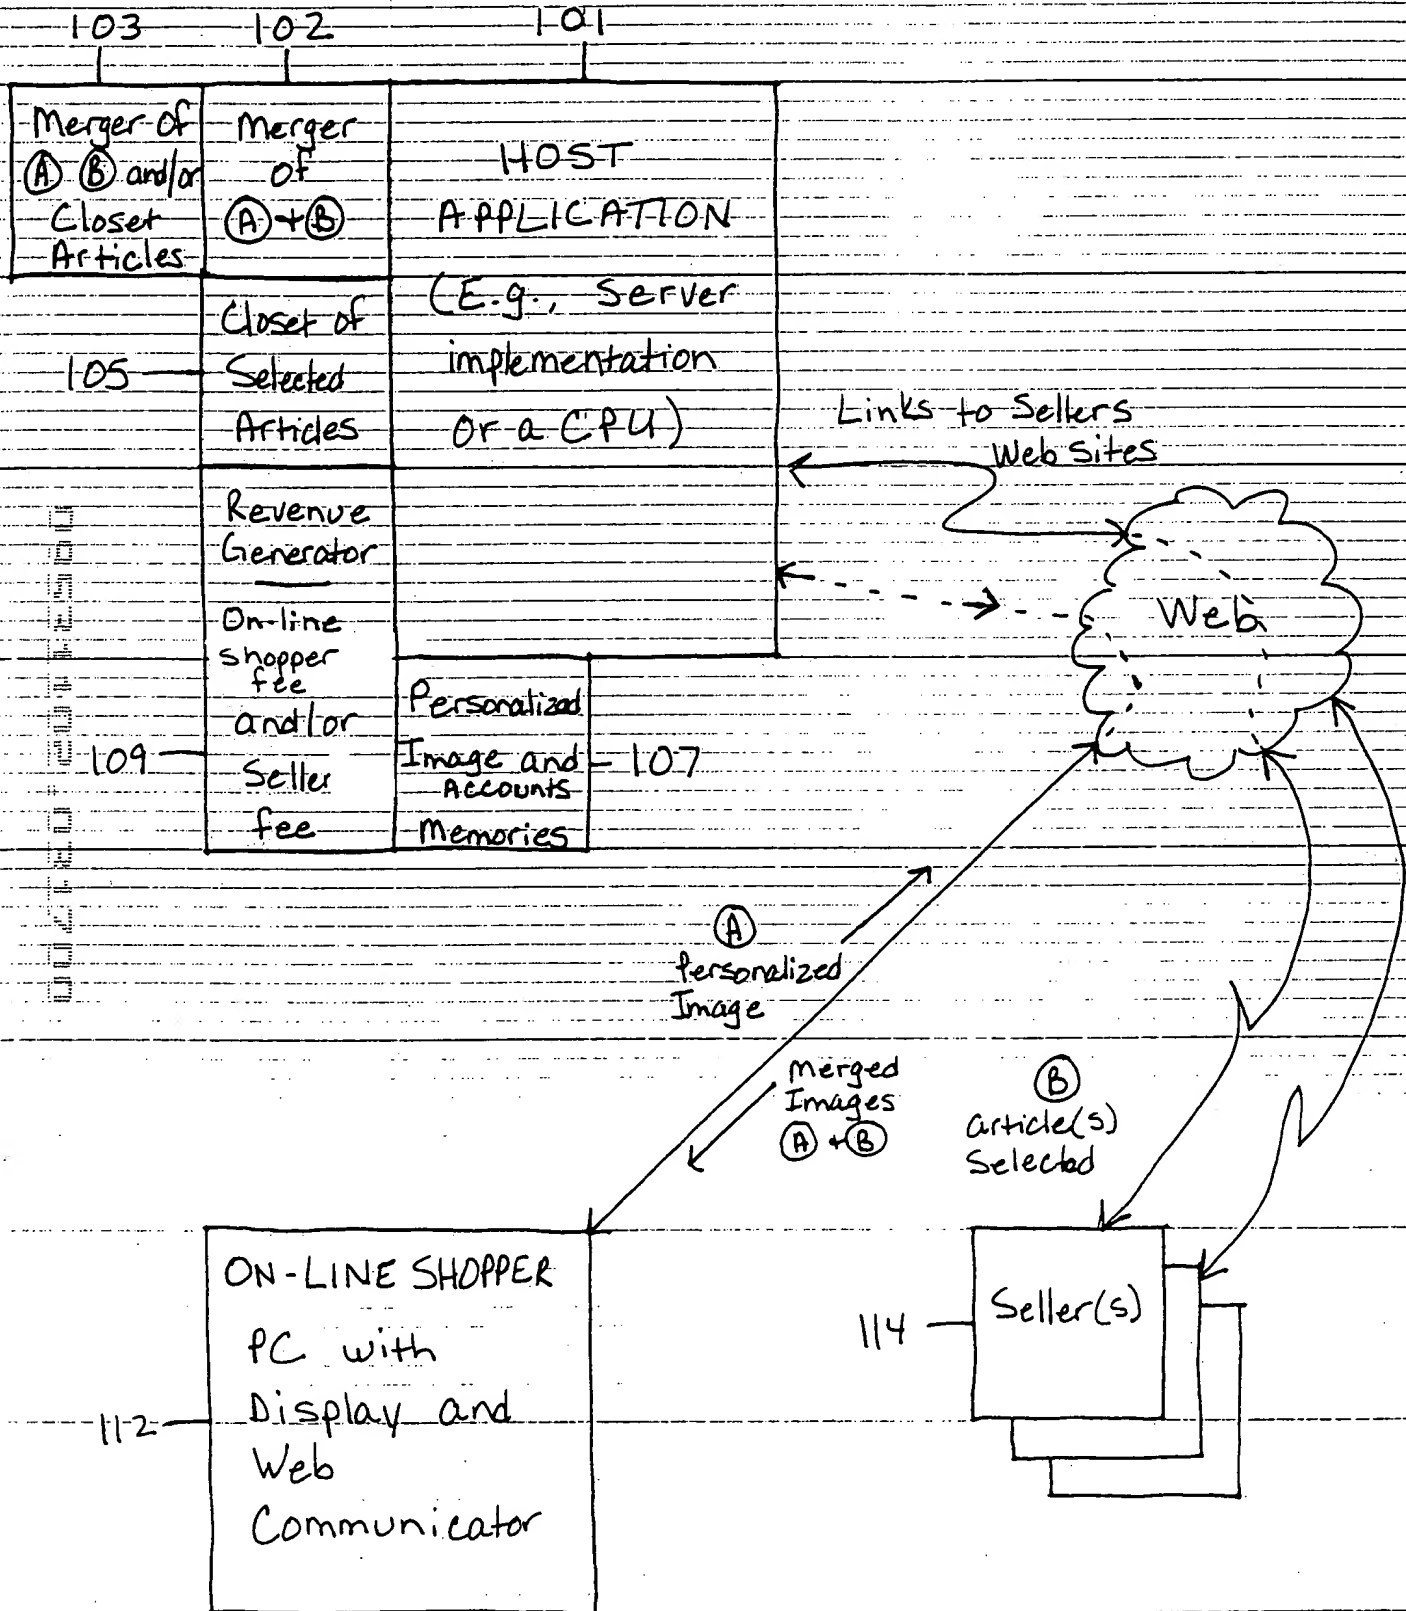 103
102
101
Merger of
Ⓐ Ⓑ and/or
Closet
Articles
Merger
of
Ⓐ+Ⓑ
HOST
APPLICATION
(E.g., Server
implementation
or a CPU)
105
Closet of
Selected
Articles
Links to Sellers
Web Sites
Revenue
Generator
On-line
Shopper
fee
and/or
Seller
fee
109
Personalized
Image and
Accounts
Memories
107
Web
Ⓐ
Personalized
Image
Merged
Images
Ⓐ+Ⓑ
Ⓑ
article(s)
Selected
ON-LINE SHOPPER
PC with
Display and
Web
Communicator
112
Seller(s)
114